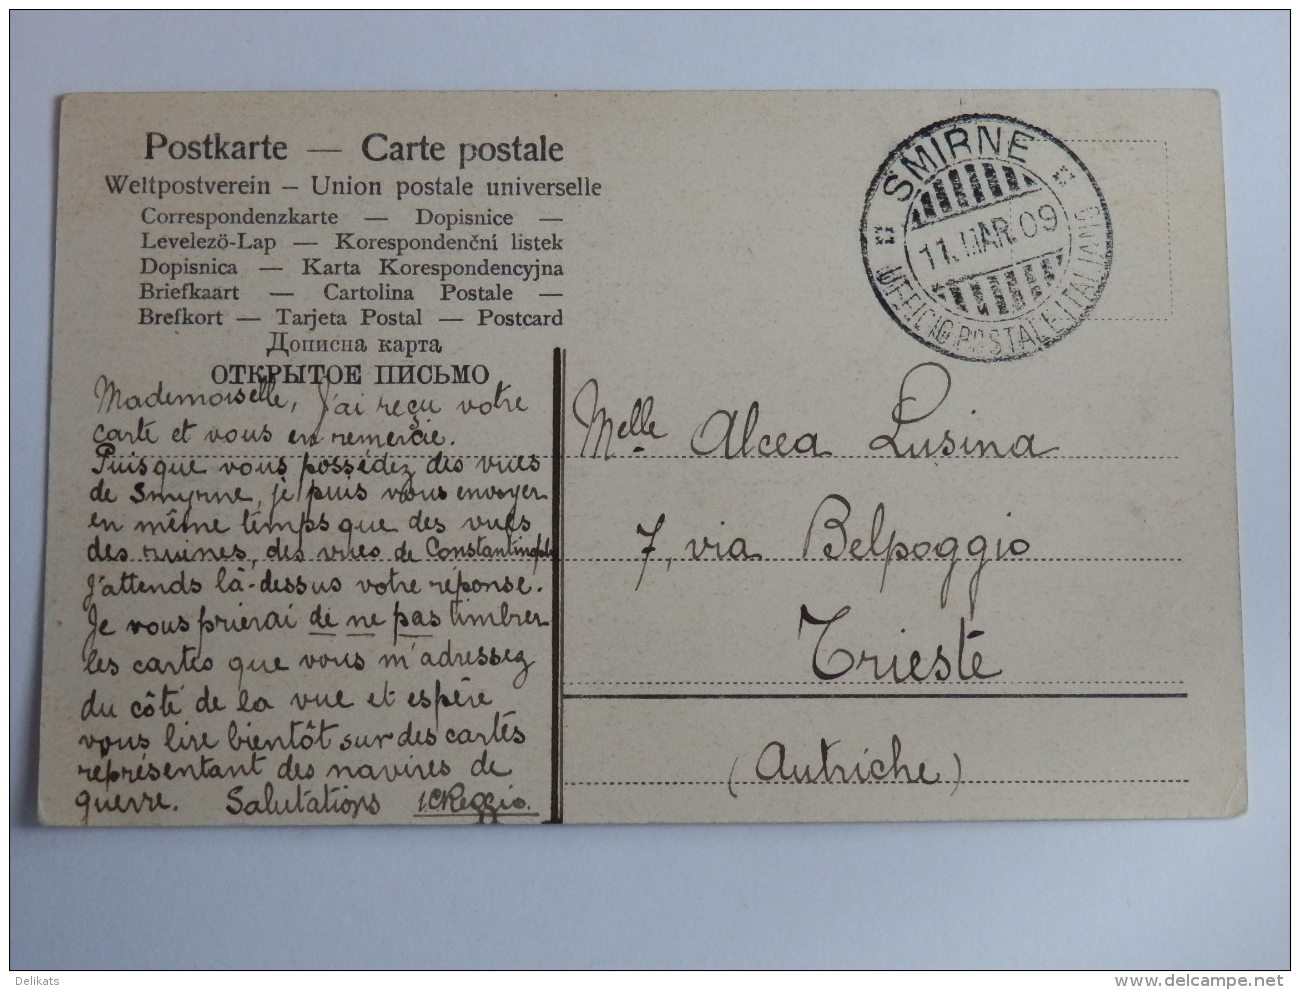 Postkarte — Carte postale
Weltpostverein – Union postale universelle
Correspondenzkarte — Dopisnice —
Levelezö-Lap — Korespondenční listek
Dopisnica — Karta Korespondencyjna
Briefkaart — Cartolina Postale —
Brefkort — Tarjeta Postal — Postcard
Дописна карта
ОТКРЫТОЕ ПИСЬМО
SMIRNE
11. MAR. 09
UFFICIO POSTALE ITALIANO
Mademoiselle, J'ai reçu votre
carte et vous en remercie.
Puisque vous possédez des vues
de Smyrne, je puis vous envoyer
en même temps que des vues
des ruines, des vues de Constantinople
J'attends là-dessus votre réponse.
Je vous prierai de ne pas timbrer
les cartes que vous m'adressez
du côté de la vue et espère
vous lire bientôt sur des cartes
représentant des navires de
guerre. Salutations I.C. Reggio.
Melle Alcea Lusina
7, via Belpoggio
Trieste
(Autriche)
Delikats
www.delcampe.net